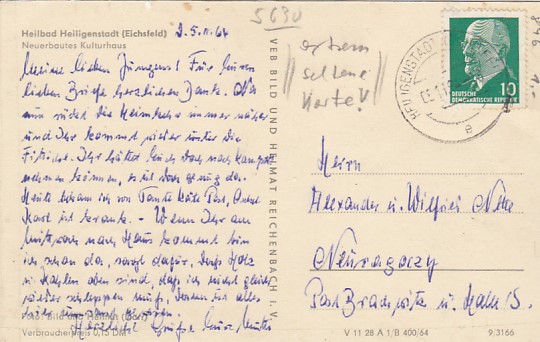 Heilbad Heiligenstadt (Eichsfeld)
Neuerbautes Kulturhaus
D. 5.11.64
Meine lieben Jungens! Für Euren
lieben Brief herzlichen Dank.
nun rückt die Heimkehr immer näher
und Ihr kommt wieder unter die
Fittiche. Ihr hättet Euch doch noch
nehmen können, es ist doch genug da.
Heute bekam ich von Tante Käte Post, Onkel
Karl ist krank. - Wenn Ihr am
Mittwoch nach Haus kommt bin
ich schon da, sorgt dafür, dass Holz
u. Kohlen oben sind, daß ich nicht gleich
wieder schleppen muß,
Herzliche Grüße Eure Mutter
Verbraucherpreis 0,15 DM
VEB BILD UND HEIMAT REICHENBACH I. V.
5630
extrem
seltene
Karte!
HEILIGENSTADT
DEUTSCHE
DEMOKRATISCHE REPUBLIK
10
e
Herrn
Alexander u. Wilfried
Neuragoczy
Post Brachwitz ü. Halle/S.
V 11 28 A 1/B 400/64
9/3166